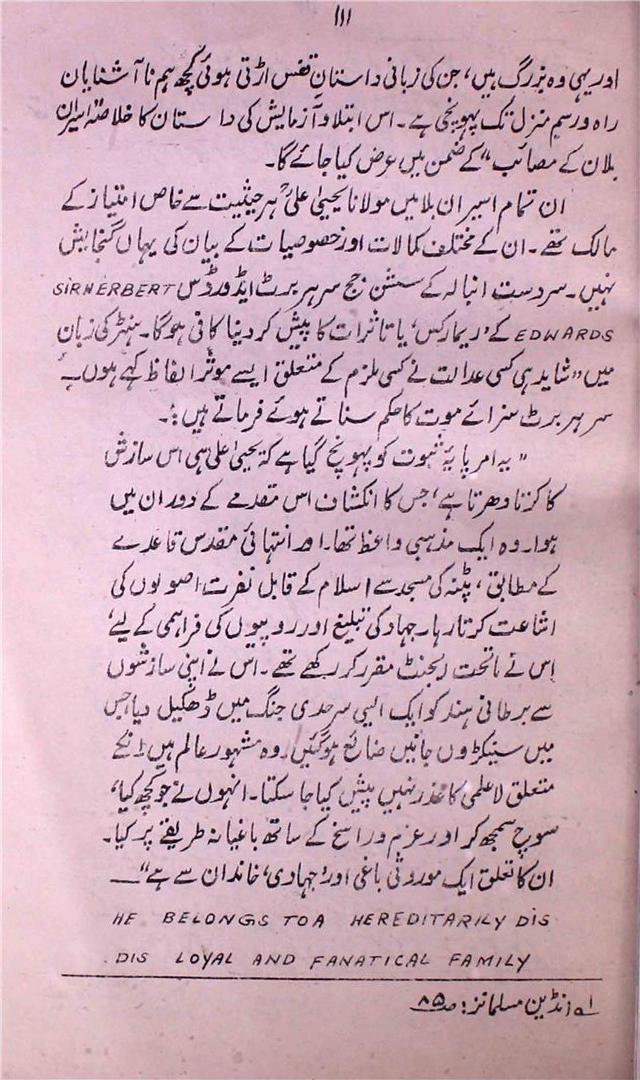 ۱۱۱
اور یہی وہ بزرگ ہیں، جن کی زبانی داستانِ قفس اڑتی ہوئی کچھ ہم نا آشنایانِ
راہ و رسمِ منزل تک پہونچی ہے۔ اس ابتلا و آزمایش کی داستان کا خلاصہ اسیرانِ
بلا ن کے مصائب“ کے ضمن میں عرض کیا جائے گا۔
ان تمام اسیرانِ بلا میں مولانا یحییٰ علیؒ ہر حیثیت سے خاص امتیاز کے
مالک تھے۔ ان کے مختلف کمالات اور خصوصیات کے بیان کی یہاں گنجایش
نہیں۔ سردست انبالہ کے سسشن جج سر ہربرٹ ایڈورڈس SIR HERBERT
EDWARDS کے ’ریمارکس‘ یا تاثرات کا پیش کر دینا کافی ہوگا۔ ہنٹر کی زبان
میں ”شاید ہی کسی عدالت نے کسی ملزم کے متعلق ایسے موثر الفاظ کہے ہوں۔“
سر ہربرٹ سزائے موت کا حکم سناتے ہوئے فرماتے ہیں:۔
”یہ امر پایۂ ثبوت کو پہونچ گیا ہے کہ یحییٰ علی ہی اس سازش
کا کرتا دھرتا ہے، جس کا انکشاف اس مقدمے کے دوران میں
ہوا۔ وہ ایک مذہبی واعظ تھا۔ اور انتہائی مقدس قاعدے
کے مطابق، پٹنہ کی مسجد سے اسلام کے قابل نفرت اصولوں کی
اشاعت کرتا رہا۔ جہاد کی تبلیغ اور روپیوں کی فراہمی کے لیے،
اس نے ماتحت ایجنٹ مقرر کر رکھے تھے۔ اس نے اپنی سازشوں
سے برطانی ہند کو ایک ایسی سرحدی جنگ میں ڈھکیل دیا جس
میں سینکڑوں جانیں ضائع ہوگئیں۔ وہ مشہور عالم ہیں انکے
متعلق لاعلمی کا عذر نہیں پیش کیا جا سکتا۔ انہوں نے جو کچھ کیا،
سوچ سمجھ کر اور عزم راسخ کے ساتھ باغیانہ طریقے پر کیا۔
ان کا تعلق ایک موروثی باغی اور ’جہادی‘ خاندان سے ہے“ ــــ
HE BELONGS TO A HEREDITARILY DIS
DIS LOYAL AND FANATICAL FAMILY.
۱؎ انڈین مسلمانز: صـ ۸۵